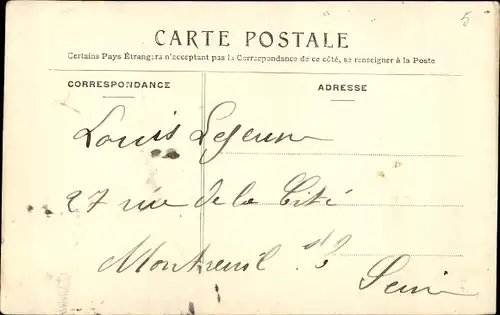 5
CARTE POSTALE
Certains Pays Étrangers n'acceptant pas la Correspondance de ce côté, se renseigner à la Poste
CORRESPONDANCE
ADRESSE
Louis Lejeune
27 rue de la Cité
Montreuil s/s
Seine